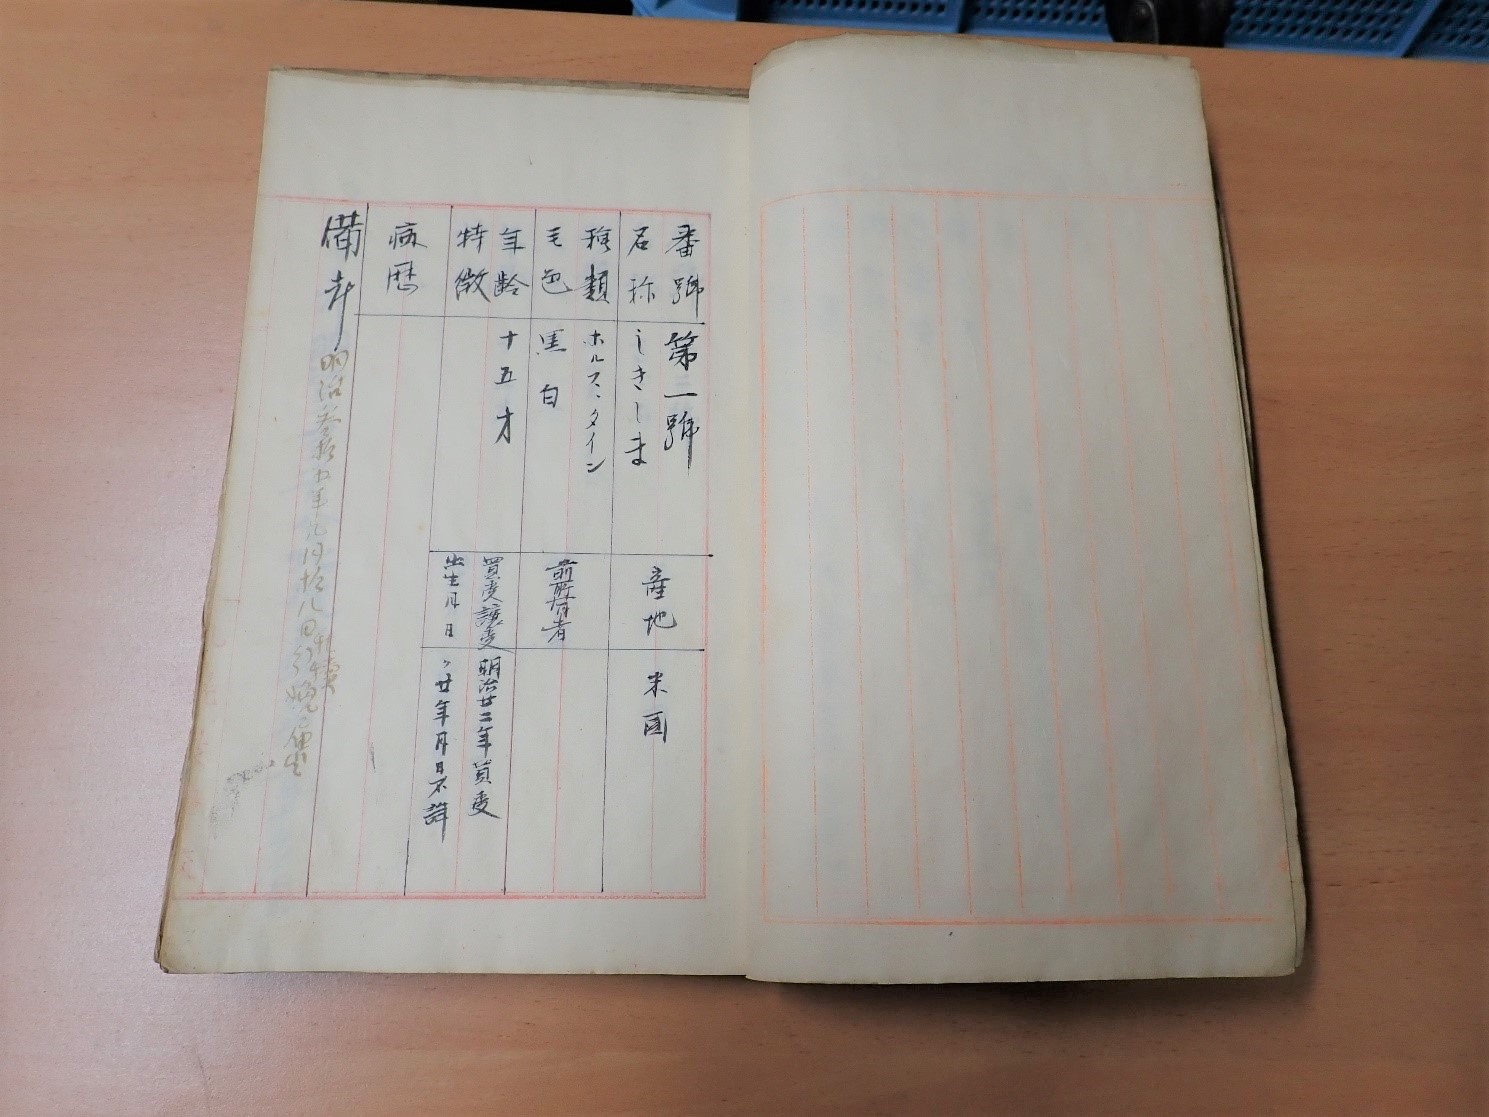 番號 第二號
名称 しきしま
種類 ホルスタイン
毛色 黒白
年齢 十五才
特徴
産地 米国
前所有者
買受譲受 明治廿二年買受
出生月日 〃廿年月日不詳
病歴
備考
明治参拾五年
月拾八日